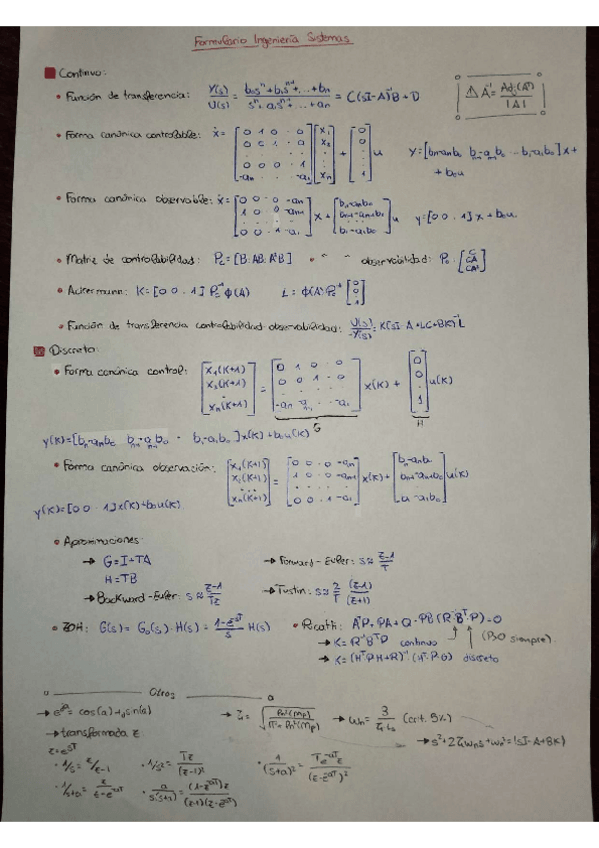 Formulario Ingeniería Sistemas
Continuo:
• Función de transferencia: Y(s)/U(s) = (b₀sⁿ + b₁sⁿ⁻¹ + ... + bₙ)/(sⁿ + a₁sⁿ⁻¹ + ... + aₙ) = C(sI-A)⁻¹B + D
⚠ A⁻¹ = Adj(Aᵗ)/|A|
• Forma canónica controlable: ẋ = [0 1 0 · 0; 0 0 1 · 0; · · · · ·; 0 0 0 · 1; -aₙ · · · -a₁] [x₁; x₂; ⋮; xₙ] + [0; 0; ⋮; 1] u
y = [bₙ-aₙb₀ bₙ₋₁-aₙ₋₁b₀ ... b₁-a₁b₀] x +
+ b₀u
• Forma canónica observable: ẋ = [0 0 · 0 -aₙ; 1 0 · 0 -aₙ₋₁; · · · · ·; 0 0 · 1 -a₁] x + [bₙ-aₙb₀; bₙ₋₁-aₙ₋₁b₀; ⋮; b₁-a₁b₀] u y = [0 0 · 1] x + b₀u
• Matriz de controlabilidad: Pc = [B: AB: A²B] • " " observabilidad: Po: [C; CA; CA²]
• Ackermann: K = [0 0 · 1] Pc⁻¹ φ(A) L = φ(A) Po⁻¹ [0; 0; 1]
• Función de transferencia controlabilidad observabilidad: U(s)/-Y(s) = K(sI-A+LC+BK)⁻¹L
Discreto:
• Forma canónica control: [x₁(K+1); x₂(K+1); ⋮; xₙ(K+1)] = [0 1 0 · 0; 0 0 1 0 · 0; · · · · ·; -aₙ -aₙ₋₁ · · -a₁] x(K) + [0; 0; ⋮; 1] u(K)
G H
y(K) = [bₙ-aₙb₀ bₙ₋₁-aₙ₋₁b₀ · b₁-a₁b₀] x(K) + b₀u(K)
• Forma canónica observación: [x₁(K+1); x₂(K+1); ⋮; xₙ(K+1)] = [0 0 · 0 -aₙ; 1 0 · 0 -aₙ₋₁; · · · · ·; 0 0 · 1 -a₁] x(K) + [bₙ-aₙb₀; bₙ₋₁-aₙ₋₁b₀; ⋮; b₁-a₁b₀] u(K)
y(K) = [0 0 · 1] x(K) + b₀u(K)
• Aproximaciones:
→ G = I + TA → Forward-Euler: s ≈ (z-1)/T
H = TB
→ Backward-Euler: s ≈ (z-1)/(Tz) → Tustin: s ≈ 2/T (z-1)/(z+1)
• ZOH: G(s) = G₀(s) · H(s) = (1-e⁻ˢᵀ)/s H(s) • Ricatti: AᵀP + PA + Q - PB(R⁻¹BᵀP) = 0
→ K = R⁻¹BᵀP continuo (P>0 siempre)
→ K = (HᵀPH+R)⁻¹(HᵀPG) discreto
Otros
→ eʲᵃ = cos(a) + j sin(a) → ζ = √(ln²(Mp)/(π²+ln²(Mp))) → ωn = 3/(ζ·ts) (crit. 5%)
→ transformada z → s² + 2ζωns + ωn² = |sI-A+BK|
z = eˢᵀ
• 1/s = z/(z-1) • 1/s² = Tz/(z-1)² • 1/(s+a)² = Te⁻ᵃᵀz/(z-e⁻ᵃᵀ)²
• 1/(s+a) = z/(z-e⁻ᵃᵀ) • a/(s(s+a)) = (1-e⁻ᵃᵀ)z/((z-1)(z-e⁻ᵃᵀ))